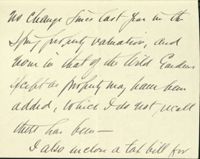 no change since last year in the
Spring property valuation, and
none in that of the Wild Gardens
except as property may have been
added, which I do not recall
there has been —
I also enclose a tax bill for